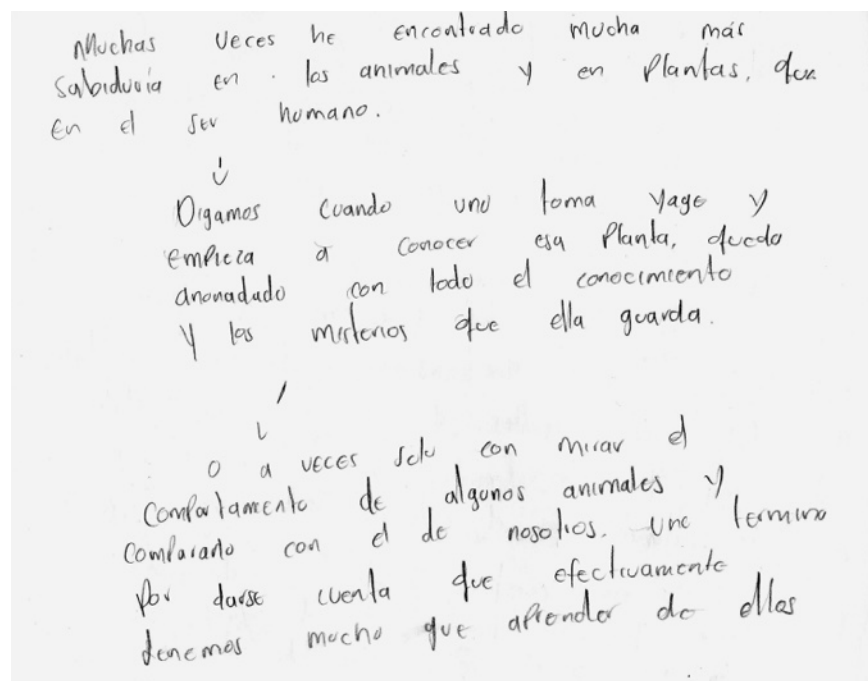 Muchas veces he encontrado mucha más
sabiduría en los animales y en plantas, que
en el ser humano.
Digamos cuando uno toma yage y
empieza a conocer esa planta, queda
anonadado con todo el conocimiento
y los misterios que ella guarda.
o a veces solo con mirar el
comportamiento de algunos animales y
compararlo con el de nosotros. uno termina
por darse cuenta que efectivamente
tenemos mucho que aprender de ellos